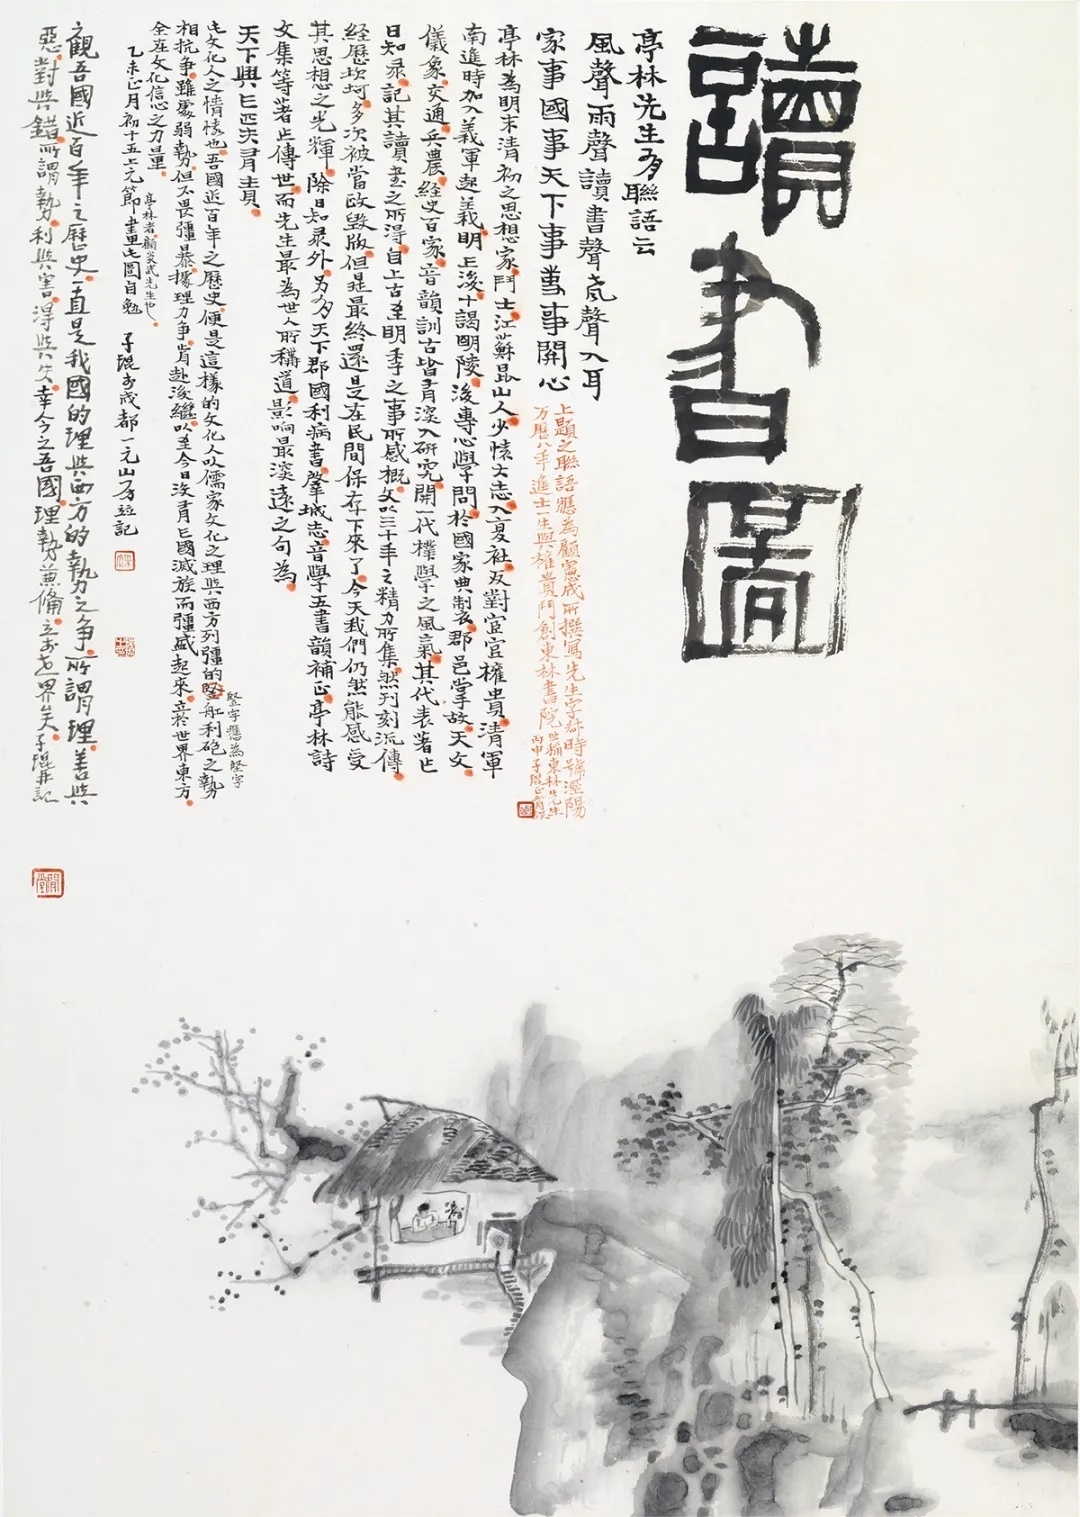 讀書圖
亭林先生有聯語云
風聲雨聲讀書聲聲聲入耳
家事國事天下事事事關心
上題之聯語應為顧憲成所撰寫先生字叔時號涇陽
万曆八年進士一生與權貴鬥創東林書院世稱東林先生
丙申子琨
亭林為明末清初之思想家鬥士江蘇崑山人少懷大志入復社反對宦官權貴清軍
南進時加入義軍起義明亡後十謁明陵後專心學問於國家典制郡邑掌故天文
儀象交通兵農經史百家音韻訓古皆有深入研究開一代樸學之風氣其代表著作
日知录記其讀書之所得自上古至明季之事所感概文以三十年之精力所集然刊刻流傳
経歷坎坷多次被當政毀版但是最終還是在民間保存下來了今天我們仍然能感受
其思想之光輝除日知录外另有天下郡國利病書肇域志音學五書韻補正亭林詩
文集等著作傳世而先生最為世人所稱道影响最深遠之句為
天下興亡匹夫有責
此文化人之情懷也吾國近百年之歷史便是這樣的文化人以儒家文化之理與西方列彊的堅舡利砲之勢
堅字應為堅字
相抗争雖處弱勢但不畏彊暴據理力争前赴後繼以至今日沒有亡國滅族而彊盛起來立於世界東方
全在文化信念之力量
亭林者顧炎武先生也
乙未正月初十五上元節畫此圖自勉 子琨於成都一元山房并記
觀吾國近百年之歷史一直是我國的理與西方的勢力之争所謂理善與
惡對與錯所謂勢利與害得與失幸今之吾國理勢兼備立於世界矣子琨并記